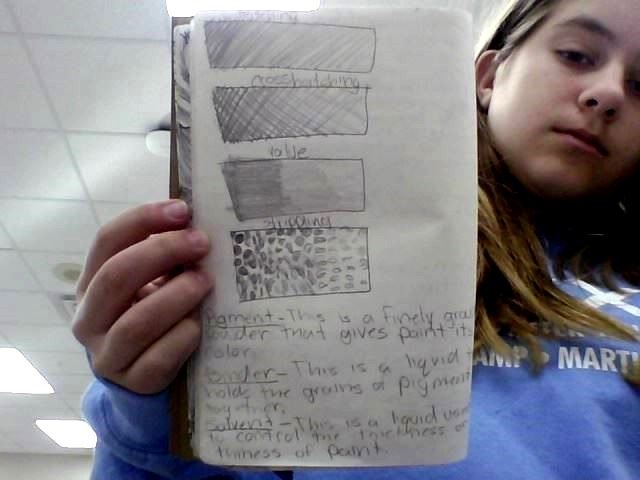 hatching
crosshatching
value
stippling
Pigment - This is a finely grou
powder that gives paint it
color.
Binder - This is a liquid
holds the grains of pigment
together.
Solvent - This is a liquid use
to control the thickness or
thiness of paint.
AMP • MARTI